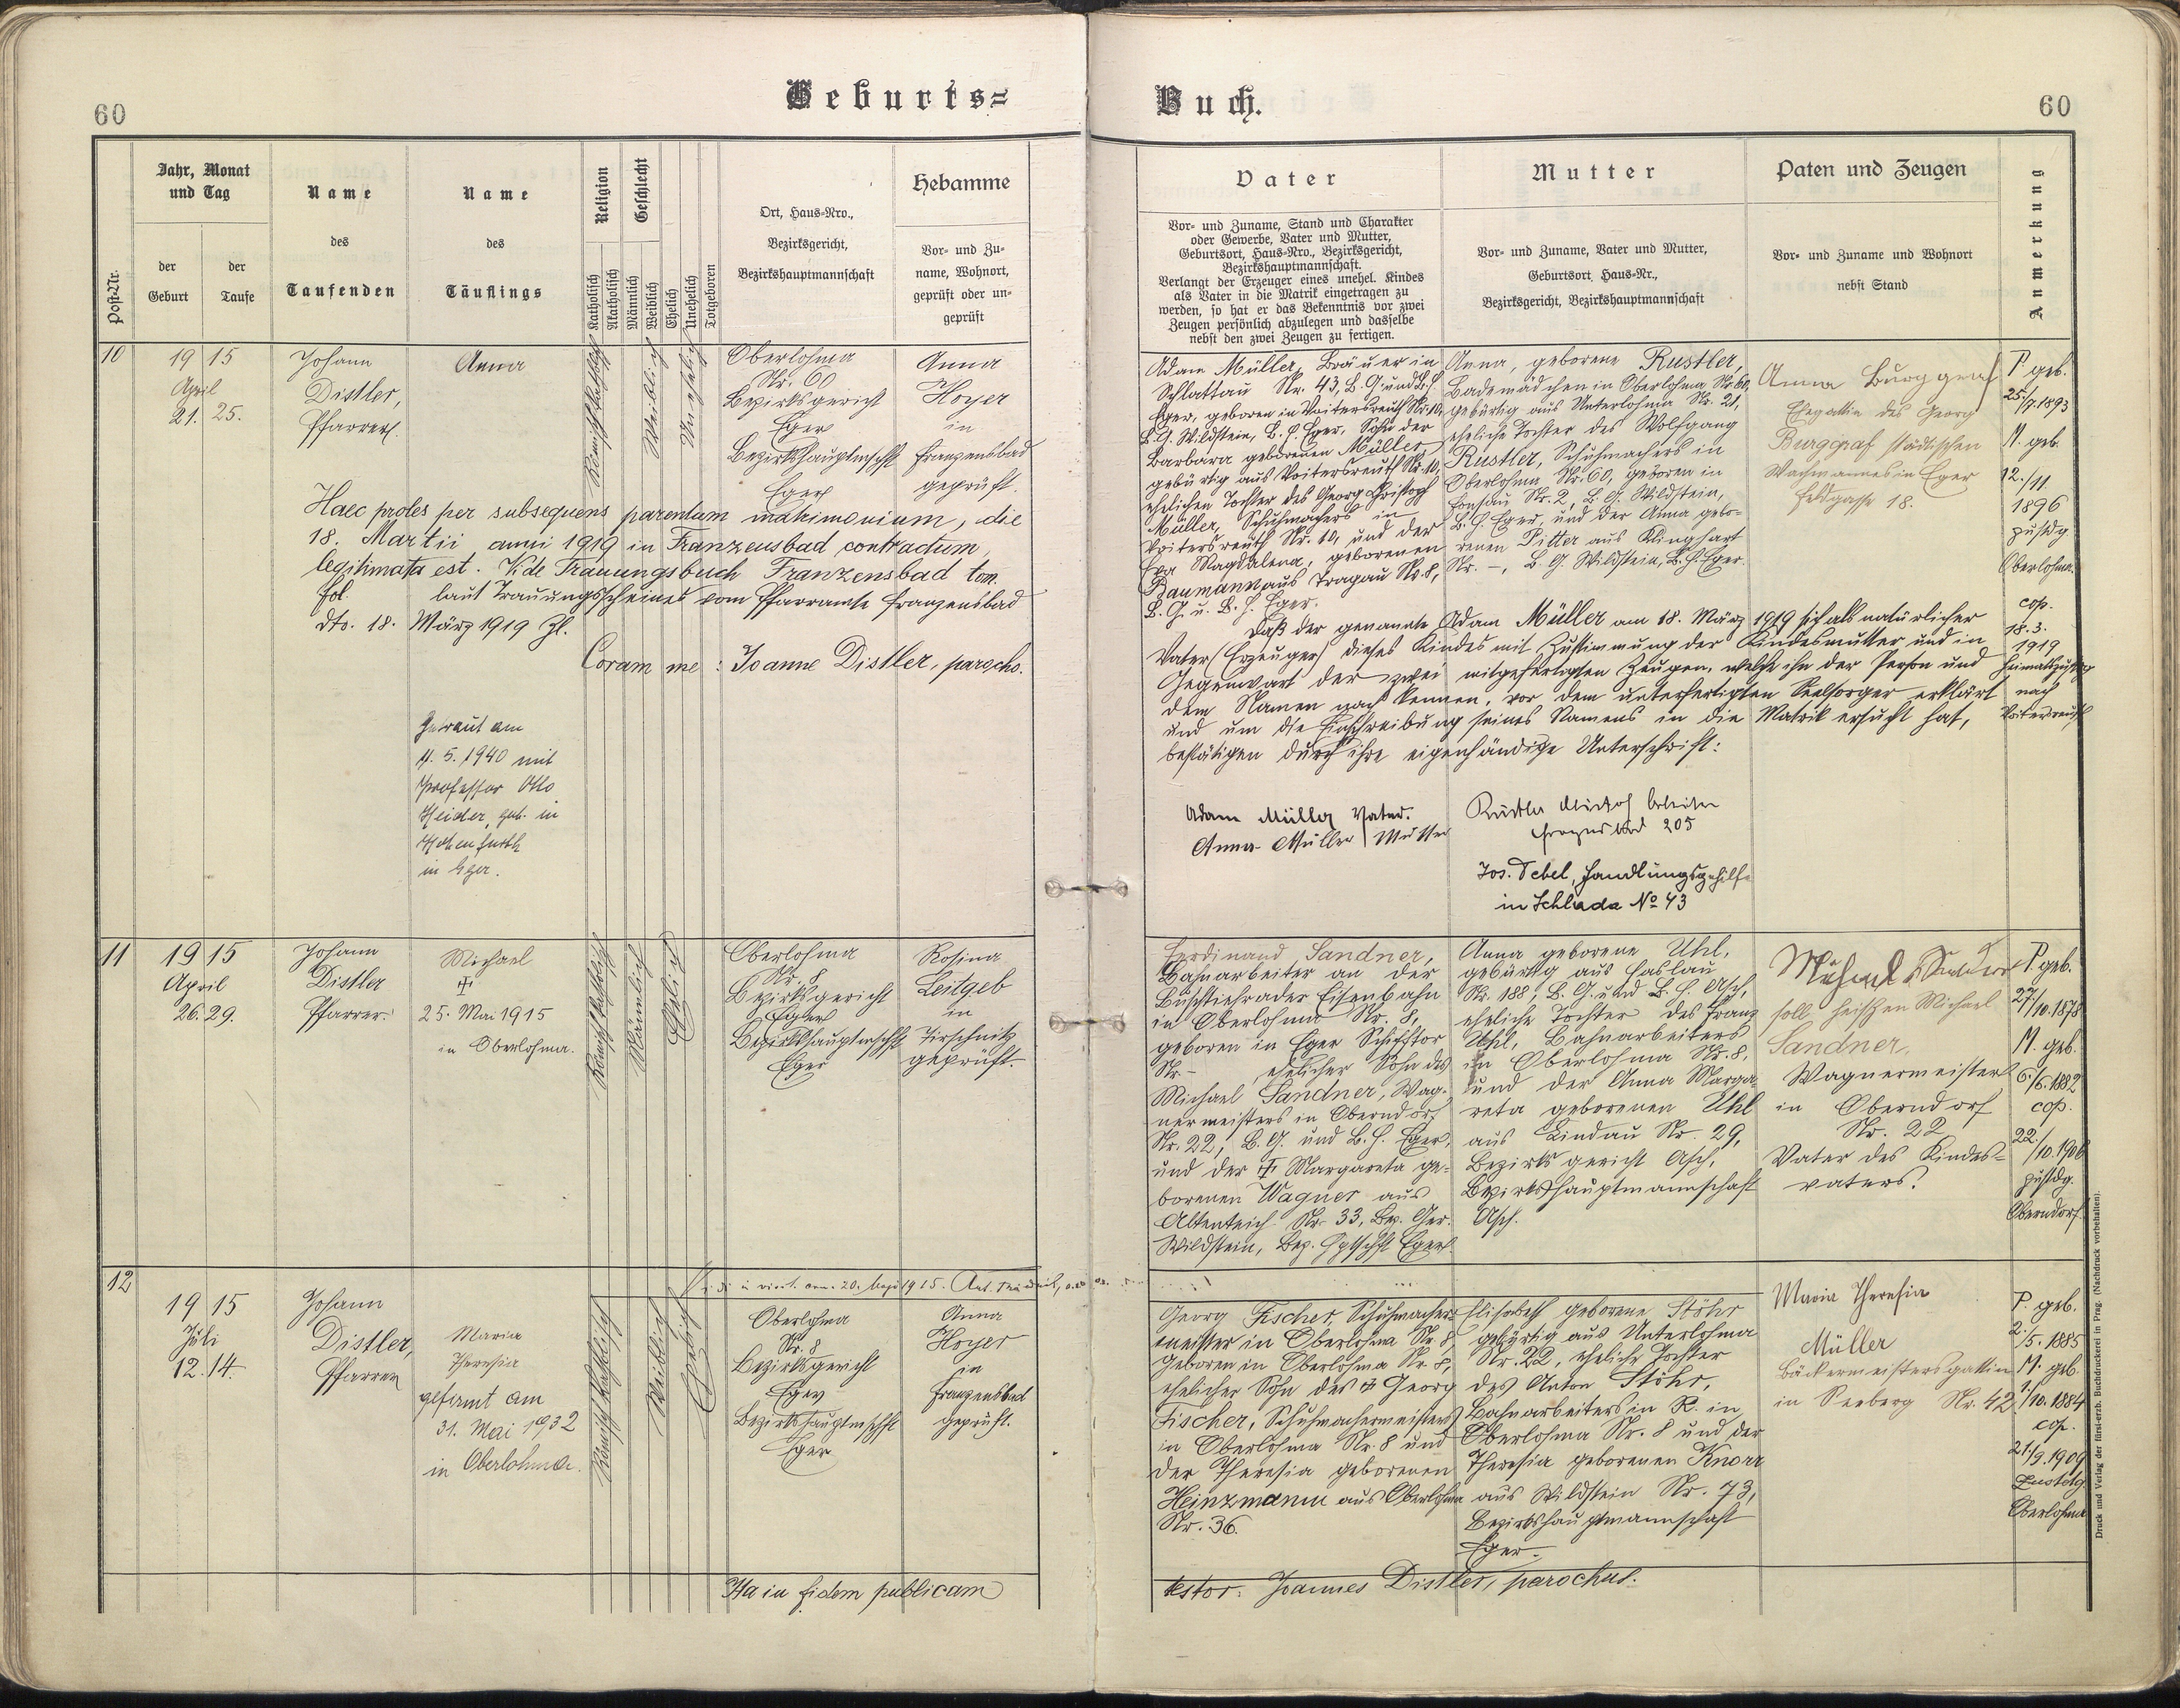 60
Geburts=
Post-Nr.
Jahr, Monat
und Tag
der
Geburt
der
Taufe
Name
des
Taufenden
Name
des
Täuflings
Religion
Katholisch
Akatholisch
Geschlecht
Männlich
Weiblich
Ehelich
Unehelich
Totgeboren
Ort, Haus=Nro.,
Bezirksgericht,
Bezirkshauptmannschaft
Hebamme
Vor= und Zu=
name, Wohnort,
geprüft oder un=
geprüft
10
19 15
April
21. 25.
Johann
Distler,
Pfarrer.
Anna
Römisch katholisch
Weiblich
Unehelich
Oberlohma
Nr. 60
Bezirksgericht
Eger
Bezirkshauptmschft
Eger
Anna
Hoyer
in
Franzensbad
geprüft.
Haec proles per subsequens parentum matrimonium, die
18. Martii anni 1919 in Franzensbad contractum,
legitimata est. Vide Trauungsbuch Franzensbad tom.
fol. laut Trauungsscheines vom Pfarramte Franzensbad
dto. 18. März 1919 Zl.
Coram me : Joanne Distler, parocho.
Getraut am
4. 5. 1940 mit
Professor Otto
Heider, geb. in
Hohenfurth
in Eger.
11
19 15
April
26. 29.
Johann
Distler
Pfarrer.
Michael
†
25. Mai 1915
in Oberlohma.
Römisch katholisch
Männlich
Ehelich
Oberlohma
Nr. 8
Bezirksgericht
Eger
Bezirkshauptmschft
Eger
Rosina
Leitgeb
in
Tirschnitz
geprüft.
12
19 15
Juli
12. 14.
Johann
Distler,
Pfarrer
Maria
Theresia
gefirmt am
31. Mai 1932
in Oberlohma.
Römisch katholisch
Weiblich
Ehelich
20. 1915.
Oberlohma
Nr. 8
Bezirksgericht
Eger
Bezirkshauptmschft
Eger
Anna
Hoyer
in
Franzensbad
geprüft.
Ita in fidem publicam
Buch.
60
Vater
Vor= und Zuname, Stand und Charakter
oder Gewerbe, Vater und Mutter,
Geburtsort, Haus=Nro., Bezirksgericht,
Bezirkshauptmannschaft.
Verlangt der Erzeuger eines unehel. Kindes
als Vater in die Matrik eingetragen zu
werden, so hat er das Bekenntnis vor zwei
Zeugen persönlich abzulegen und dasselbe
nebst den zwei Zeugen zu fertigen.
Mutter
Vor= und Zuname, Vater und Mutter,
Geburtsort, Haus=Nr.,
Bezirksgericht, Bezirkshauptmannschaft
Paten und Zeugen
Vor= und Zuname und Wohnort
nebst Stand
Anmerkung
Adam Müller, Bräuer in
Schlattau Nr. 43, B. G. und B. H.
Eger, geboren in Voitersreuth Nr. 10,
B. G. Wildstein, B. H. Eger, Sohn der
Barbara geborenen Müller,
gebürtig aus Voitersreuth Nr. 10,
ehelichen Tochter des Georg Christoph
Müller, Schuhmachers in
Voitersreuth Nr. 10, und der
Eva Magdalena, geborenen
Baumann aus Tragau Nr. 8,
B. G. u. B. H. Eger.
Anna, geborene Rustler,
Bademädchen in Oberlohma Nr. 60,
gebürtig aus Unterlohma Nr. 21,
eheliche Tochter des Wolfgang
Rustler, Schuhmachers in
Oberlohma Nr. 60, geboren in
Fonsau Nr. 2, B. G. Wildstein,
B. H. Eger, und der Anna gebo=
renen Pitter aus Klinghart
Nr. –, B. G. Wildstein, B. H. Eger.
Anna Burggraf
Ehegattin des Georg
Burggraf städtischen
Wachmannes in Eger
Feldgasse 18.
P. geb.
25./7. 1893
M. geb.
12./11.
1896
zustdg.
Oberlohma.
cop.
18. 3.
1919
nach
Daß der genannte Adam Müller am 18. März 1919 sich als natürlicher
Vater (Erzeuger) dieses Kindes mit Zustimmung der Kindesmutter und in
Gegenwart der zwei mitgefertigten Zeugen, welche ihn der Person und
dem Namen nach kennen, vor dem unterfertigten Seelsorger erklärt
und um die Einschreibung seines Namens in die Matrik ersucht hat,
bestätigen durch ihre eigenhändige Unterschrift:
Adam Müller Vater.
Anna Müller Mutter
Franzensbad 205
Jos. Febel, Handlungsgehilfe
in Schlada No 43
Ferdinand Sandner,
Bahnarbeiter an der
Buschtiehrader Eisenbahn
in Oberlohma Nr. 8,
geboren in Eger Schifftor
Nr. – ehelicher Sohn des
Michael Sandner, Wag=
nermeisters in Oberndorf
Nr. 22, B. G. und B. H. Eger,
und der † Margareta ge=
borenen Wagner aus
Altenteich Nr. 33, Bez. Ger.
Wildstein, Bez. Hptschft Eger.
Anna geborene Uhl,
gebürtig aus Haslau
Nr. 188, B. G. und B. H. Asch,
eheliche Tochter des Franz
Uhl, Bahnarbeiters
in Oberlohma Nr. 8,
und der Anna Marga=
reta geborenen Uhl
aus Lindau Nr. 29,
Bezirksgericht Asch,
Bezirkshauptmannschaft
Asch.
soll heißen Michael
Sandner,
Wagnermeister
in Oberndorf
Nr. 22
Vater des Kindes=
vaters.
P. geb.
27./10. 1878
M. geb.
6./6. 1882
cop.
22./10. 1906
zustdg.
Oberndorf
Georg Fischer, Schuhmacher=
meister in Oberlohma Nr. 8,
geboren in Oberlohma Nr. 8,
ehelicher Sohn des † Georg
Fischer, Schuhmachermeisters
in Oberlohma Nr. 8 und
der Theresia geborenen
Heinzmann aus Oberlohma
Nr. 36.
Elisabeth geborene Stöhr
gebürtig aus Unterlohma
Nr. 22, eheliche Tochter
des Anton Stöhr,
Bahnarbeiters in R. in
Oberlohma Nr. 8 und der
Theresia geborenen Knorr
aus Wildstein Nr. 73,
Bezirkshauptmannschaft
Eger.
Maria Theresia
Müller
Bäckermeistersgattin
in Seeberg Nr. 42
P. geb.
2./5. 1885
M. geb.
1./10. 1884
cop.
21./9. 1909
Zustdg.
Oberlohma
testor: Joannes Distler, parochus.
Druck und Verlag der fürst-erzb. Buchdruckerei in Prag. (Nachdruck vorbehalten).